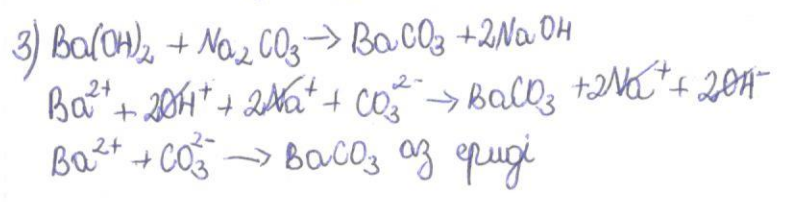 3) Ba(OH)₂ + Na₂CO₃ → BaCO₃ + 2NaOH
Ba²⁺ + 2OH⁺ + 2Na⁺ + CO₃²⁻ → BaCO₃ + 2Na⁺ + 2OH⁻
Ba²⁺ + CO₃²⁻ → BaCO₃ az